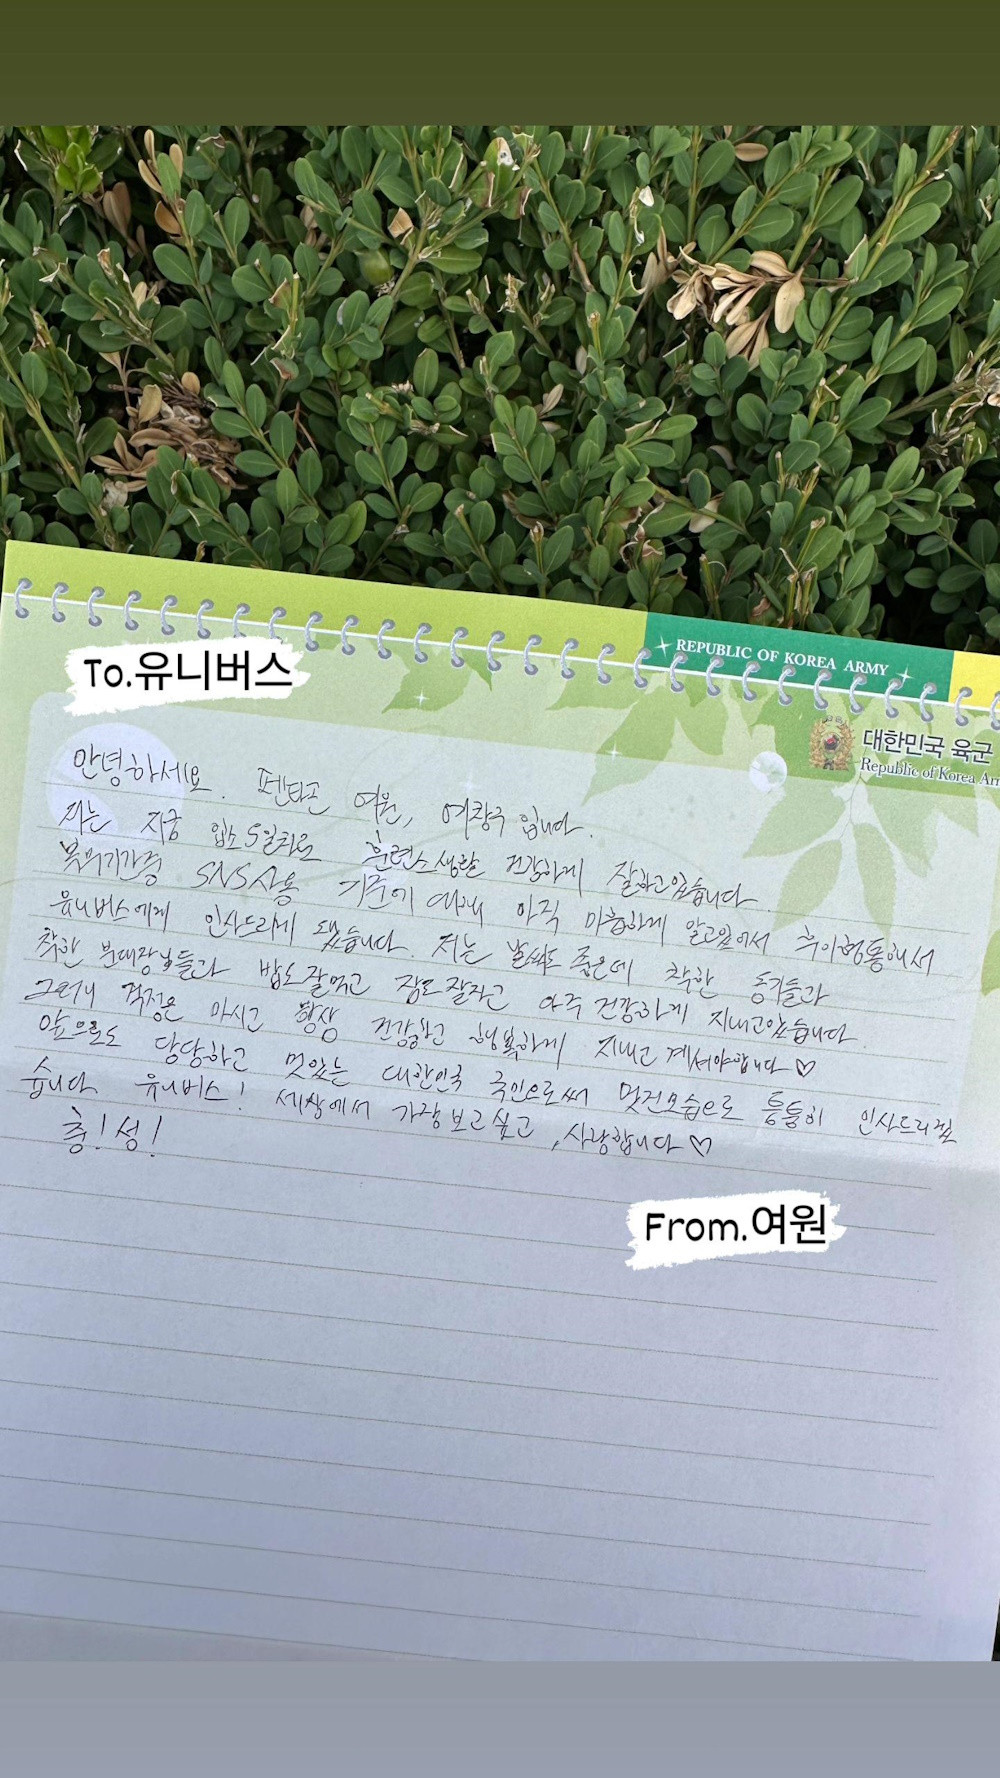 REPUBLIC OF KOREA ARMY
To.유니버스
대한민국 육군
Republic of Korea Arm
안녕하세요. 펜타곤 여원, 여창구 입니다.
저는 지금 입소 5일차로 훈련소생활 건강하게 잘하고있습니다.
SNS사용 기준에 대해 아직 미흡하게 알고있어서
유니버스에게 인사드리게 됐습니다. 저는 날씨도 좋은데 착한 동기들과
착한 분대장님들과 밥도 잘먹고 잠도 잘자고 아주 건강하게 지내고있습니다.
그러니 걱정은 마시고 항상 건강하고 행복하게 지내고 계셔야합니다♡
앞으로도 당당하고 멋있는 대한민국 국민으로써 멋진모습으로 틈틈히 인사드리겠
습니다. 유니버스! 세상에서 가장 보고싶고, 사랑합니다♡
충!성!
From.여원